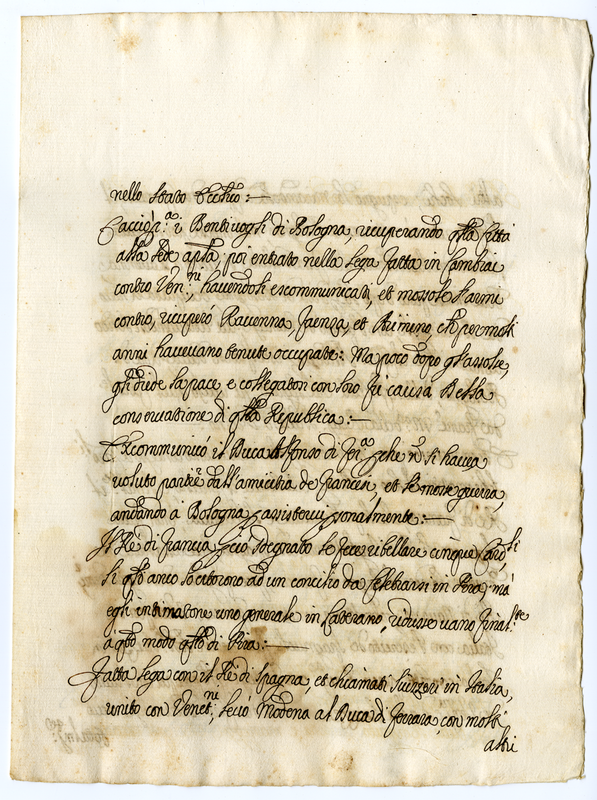 nello stato Ecch.co:—
Cacciò i Bentivogli di Bologna, ricuperando q.sta Città
alla Sede ap.lica, poi entrato nella Lega fatta in Cambrai
contro Ven.ni, havendoli escommunicati, et mossole l'armi
contro, ricuperò Ravenna, Faenza, et Rimino ch' per molti
anni havevano tenute occupate: Ma poco dopo gl'assolse,
gli diede la pace, e collegatosi con loro fù causa della
conservatione di q.lla Republica:—
Escommunicò il Duca Alfonso di Fer.a p.che n. si haveva
voluto partire dall'amicitia de Francesi, et le mosse guerra,
andando à Bologna p assistervi p.sonalmente:—
Il Rè di Francia p ciò sdegnato le fece ribellare cinque Card.li
li q.li anco lo citorono ad un concilio da celebrarsi in Pisa, mà
egli intimatone uno generale in Laterano, ridusse vano final.te
a q.sto modo q.llo di Pisa:—
Fatta lega con il Rè di Spagna, et chiamati Suizzeri in Italia,
unito con Venet.ni, levò Modena al Duca di Ferrara, con molti
altri